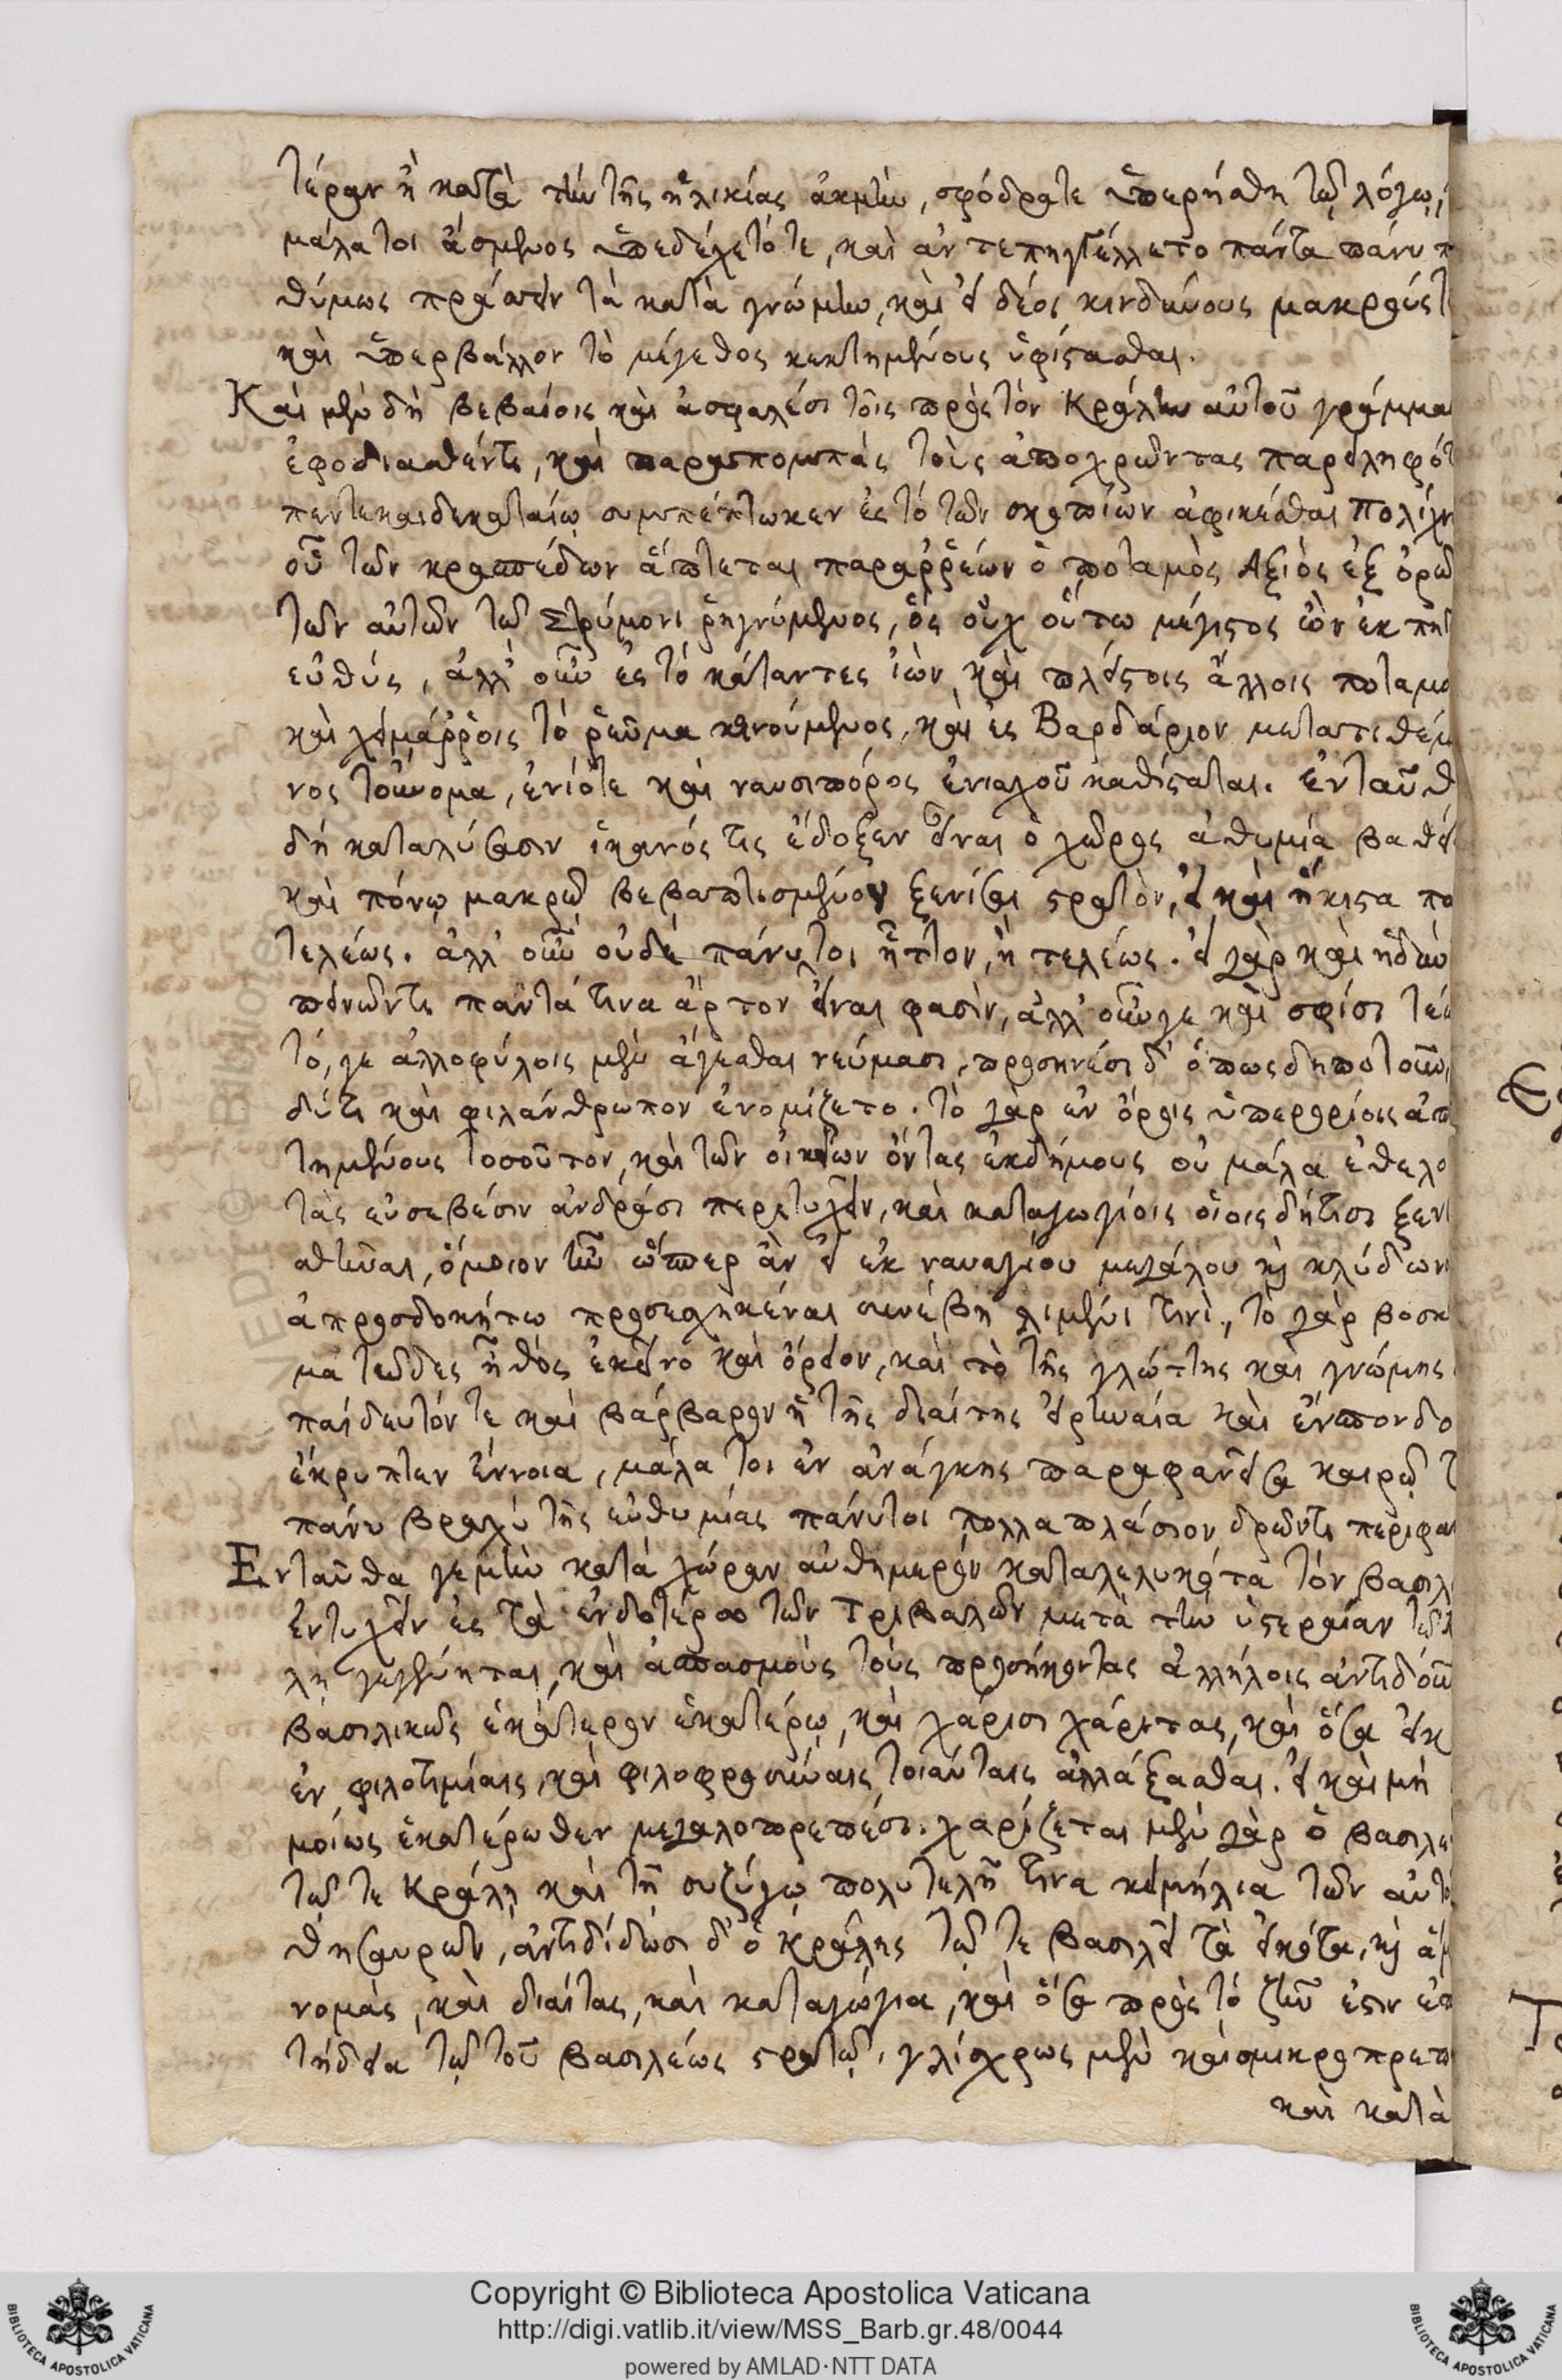 τέραν ἢ κατὰ τὴν τῆς ἡλικίας ἀκμὴν, σφόδρα τε ὑπερήσθη τῷ λόγῳ,
μάλα τοι ἄσμενος ὑπεδέχετό τε, καὶ ἀντεπηγγέλλετο πάντα πάνυ π
θύμως πράττειν τὰ κατὰ γνώμην, καὶ εἰ δέοι κινδύνους μακρούς τ
καὶ ὑπερβάλλον τὸ μέγεθος κεκτημένους ὑφίστασθαι.
Καὶ μὲν δὴ βεβαίοις καὶ ἀσφαλέσι τοῖς πρὸς τὸν Κράλην αὐτοῦ γράμμα
ἐφοδιασθέντι, καὶ παραπομπὰς τοὺς ἀποχρῶντας παρειληφότ
πεντεκαιδεκαταίῳ συμπέπτωκεν ἐς τὸ τῶν σκοπίων ἀφικέσθαι πολίχν
οὗ τῶν κρασπέδων ἅπτεται παραῤῥέων ὁ ποταμὸς Αξιὸς ἐξ ὀρῶ
τῶν αὐτῶν τῷ Στρύμονι ῥηγνύμενος, ὃς οὐχ οὕτω μέγιστος ὢν ἐκ πηγ
εὐθύς, ἀλλ' οὖν ἐς τὸ κάταντες ἰὼν, καὶ πλείστοις ἄλλοις ποταμο
καὶ χειμάῤῥοις τὸ ῥεῦμα κοινούμενος, καὶ ἐς Βαρδάριον μετατιθέμ
νος τοὔνομα, ἐνίοτε καὶ ναυσιπόρος ἐνιαχοῦ καθίσταται. ἐνταῦθ
δὴ καταλύσασιν ἱκανός τις ἔδοξεν εἶναι ὁ χῶρος ἀθυμίᾳ βαθεί
καὶ πόνῳ μακρῷ βεβαπτισμένον ξενίσαι στρατὸν, εἰ καὶ ἥκιστα πο
τελέως. ἀλλ' οὖν οὐδὲ πάνυ τοι ἧττον, ἢ τελέως. εἰ γὰρ καὶ ἡδὺν
πεινῶντι πάντά τινα ἄρτον εἶναι φασὶν, ἀλλ' οὖν γε καὶ σφίσι τέω
τό, γε ἀλλοφύλοις μὲν ἄγεσθαι νεύμασι, προσηνέσι δ' ὁπωςδηποτοῦν,
δύτι καὶ φιλάνθρωπον ἐνομίζετο. τὸ γὰρ ἐν ὅροις ὑπερορίοις ἀπ
τημένους τοσοῦτον, καὶ τῶν οἰκείων ὄντας ἐκδήμους οὐ μάλα ἐθελο
τὰς εὐσεβέσιν ἀνδράσι περιτυχεῖν, καὶ καταγωγίοις οἷοις δήτισι ξενι
σθῆναι, ὅμοιον ἦν ὥσπερ ἂν εἰ ἐκ ναυαγίου μεγάλου καὶ κλύδωνι
ἀπροσδοκήτω προσεσχηκέναι συνέβη λιμένι τινὶ, τὸ γὰρ βοσκ
ματῶδες ἦθος ἐκεῖνο καὶ ὄρειον, καὶ τὸ τῆς γλώττης καὶ γνώμης
παίδευτόν τε καὶ βάρβαρον ἡ τῆς διαίτης εἰρηναία καὶ ἔνσπονδο
ἔκρυπτεν ἔννοια, μάλα τοι ἐν ἀνάγκης παραφανεῖσα καιρῷ τ
πάνυ βραχὺ τῆς εὐθυμίας πάνυ τοι πολλαπλάσιον ὁρῶντι περιφαν
Ενταῦθα γε μὴν κατὰ χώραν αὐθημερὸν καταλελυκότα τὸν βασιλ
ἐντυχεῖν ἐς τὰ ἐνδοτέρω τῶν Τριβαλῶν μετὰ τὴν ὑστεραίαν τῷ κ
λῃ γεγένηται, καὶ ἀσπασμοὺς τοὺς προσήκοντας ἀλλήλοις ἀντιδοῦν
βασιλικῶς ἑκάτερον ἑκατέρῳ, καὶ χάρισι χάριτας, καὶ ὅσα εἰκ
ἐν φιλοτιμίαις, καὶ φιλοφροσύναις τοιαύταις ἀλλάξασθαι. εἰ καὶ μὴ
μοίως ἑκατέρωθεν μεγαλοπρεπέσι. χαρίζεται μὲν γὰρ ὁ βασιλε
τῷ τε Κράλῃ καὶ τῇ συζύγῳ πολυτελῆ τινα κειμήλια τῶν αὐτο
θησαυρῶν, ἀντιδίδωσι δ' ὁ κράλης τῷ τε βασιλεῖ τὰ εἰκότα, καὶ ἅμ
νομὰς, καὶ διαίτας, καὶ καταγώγια, καὶ ὅσα πρὸς τὸ ζῆν ἐστιν ἐπ
τήδεια τῷ τοῦ βασιλέως στρατῷ, γλίσχρως μὲν καὶ σμικροπρεπ
καὶ κατὰ
Copyright © Biblioteca Apostolica Vaticana
http://digi.vatlib.it/view/MSS_Barb.gr.48/0044
powered by AMLAD·NTT DATA
BIBLIOTECA APOSTOLICA VATICANA
BIBLIOTECA APOSTOLICA VATICANA